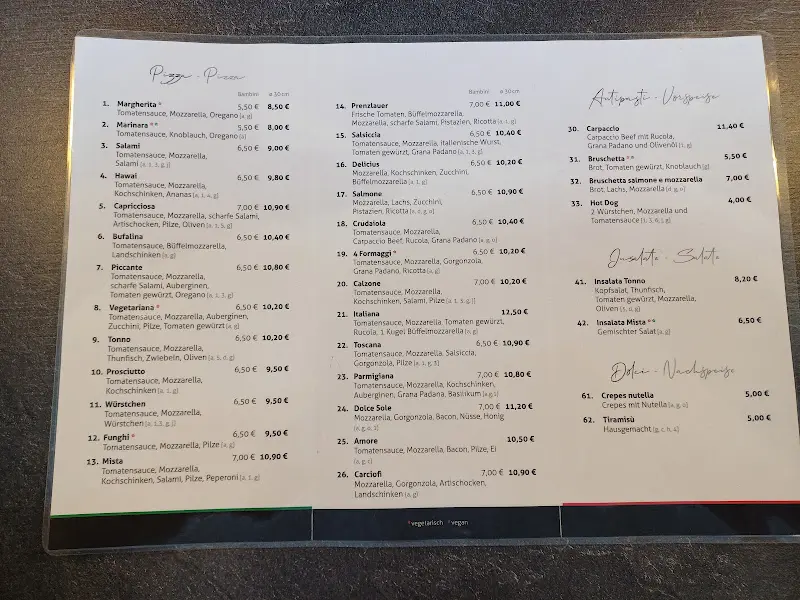 Pizza - Pizza
Bambini ø 30cm
1. Margherita * 5,50 € 8,50 €
Tomatensauce, Mozzarella, Oregano (a, g)
2. Marinara ** 5,50 € 8,00 €
Tomatensauce, Knoblauch, Oregano (a)
3. Salami 6,50 € 9,00 €
Tomatensauce, Mozzarella,
Salami
4. Hawai 6,50 € 9,80 €
Tomatensauce, Mozzarella,
Kochschinken, Ananas
5. Capricciosa 7,00 € 10,90 €
Tomatensauce, Mozzarella, scharfe Salami,
Artischocken, Pilze, Oliven
6. Bufalina 6,50 € 10,40 €
Tomatensauce, Büffelmozzarella,
Landschinken
7. Piccante 6,50 € 10,80 €
Tomatensauce, Mozzarella,
scharfe Salami, Auberginen,
Tomaten gewürzt, Oregano
8. Vegetariana * 6,50 € 10,20 €
Tomatensauce, Mozzarella, Auberginen,
Zucchini, Pilze, Tomaten gewürzt
9. Tonno 6,50 € 10,20 €
Tomatensauce, Mozzarella,
Thunfisch, Zwiebeln, Oliven
10. Prosciutto 6,50 € 9,50 €
Tomatensauce, Mozzarella,
Kochschinken
11. Würstchen 6,50 € 9,50 €
Tomatensauce, Mozzarella,
Würstchen
12. Funghi * 6,50 € 9,50 €
Tomatensauce, Mozzarella, Pilze
13. Mista 7,00 € 10,90 €
Tomatensauce, Mozzarella,
Kochschinken, Salami, Pilze, Peperoni
Bambini ø 30cm
14. Prenzlauer 7,00 € 11,00 €
Frische Tomaten, Büffelmozzarella,
Mozzarella, scharfe Salami, Pistazien, Ricotta
15. Salsiccia 6,50 € 10,40 €
Tomatensauce, Mozzarella, Italienische Wurst,
Tomaten gewürzt, Grana Padano
16. Delicius 6,50 € 10,20 €
Mozzarella, Kochschinken, Zucchini,
Büffelmozzarella
17. Salmone 6,50 € 10,90 €
Mozzarella, Lachs, Zucchini,
Pistazien, Ricotta
18. Crudaiola 6,50 € 10,40 €
Tomatensauce, Mozzarella,
Carpaccio Beef, Rucola, Grana Padano
19. 4 Formaggi * 6,50 € 10,20 €
Tomatensauce, Mozzarella, Gorgonzola,
Grana Padano, Ricotta
20. Calzone 7,00 € 10,20 €
Tomatensauce, Mozzarella,
Kochschinken, Salami, Pilze
21. Italiana 12,50 €
Tomatensauce, Mozzarella, Tomaten gewürzt,
Rucola, 1 Kugel Büffelmozzarella
22. Toscana 6,50 € 10,90 €
Tomatensauce, Mozzarella, Salsiccia,
Gorgonzola, Pilze
23. Parmigiana 7,00 € 10,80 €
Tomatensauce, Mozzarella, Kochschinken,
Auberginen, Grana Padana, Basilikum
24. Dolce Sole 7,00 € 11,20 €
Mozzarella, Gorgonzola, Bacon, Nüsse, Honig
25. Amore 10,50 €
Tomatensauce, Mozzarella, Bacon, Pilze, Ei
26. Carciofi 7,00 € 10,90 €
Mozzarella, Gorgonzola, Artischocken,
Landschinken
Antipasti - Vorspeise
30. Carpaccio 11,40 €
Carpaccio Beef mit Rucola,
Grana Padano und Olivenöl
31. Bruschetta ** 5,50 €
Brot, Tomaten gewürzt, Knoblauch
32. Bruschetta salmone e mozzarella 7,00 €
Brot, Lachs, Mozzarella
33. Hot Dog 4,00 €
2 Würstchen, Mozzarella und
Tomatensauce
Insalate - Salate
41. Insalata Tonno 8,20 €
Kopfsalat, Thunfisch,
Tomaten gewürzt, Mozzarella,
Oliven
42. Insalata Mista ** 6,50 €
Gemischter Salat
Dolci - Nachspeise
61. Crepes nutella 5,00 €
Crepes mit Nutella
62. Tiramisù 5,00 €
Hausgemacht
*vegetarisch *vegan